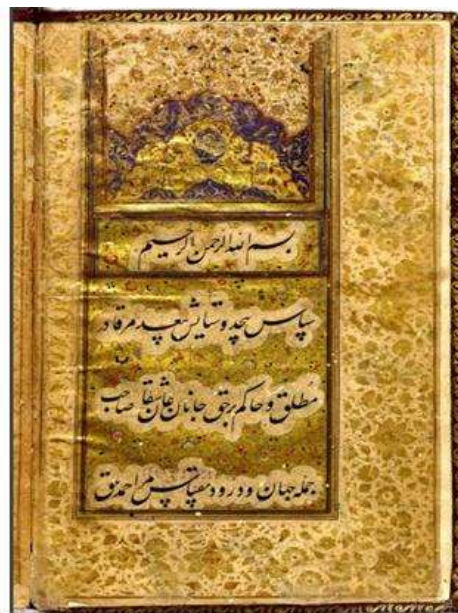 بسم الله الرحمن الرحیم
سپاس بیحد و ستایش بیعد مر قادر
مطلق و حاکم بر حق جانان عاشقان صاحب
جمله جهان و درود مر احمد